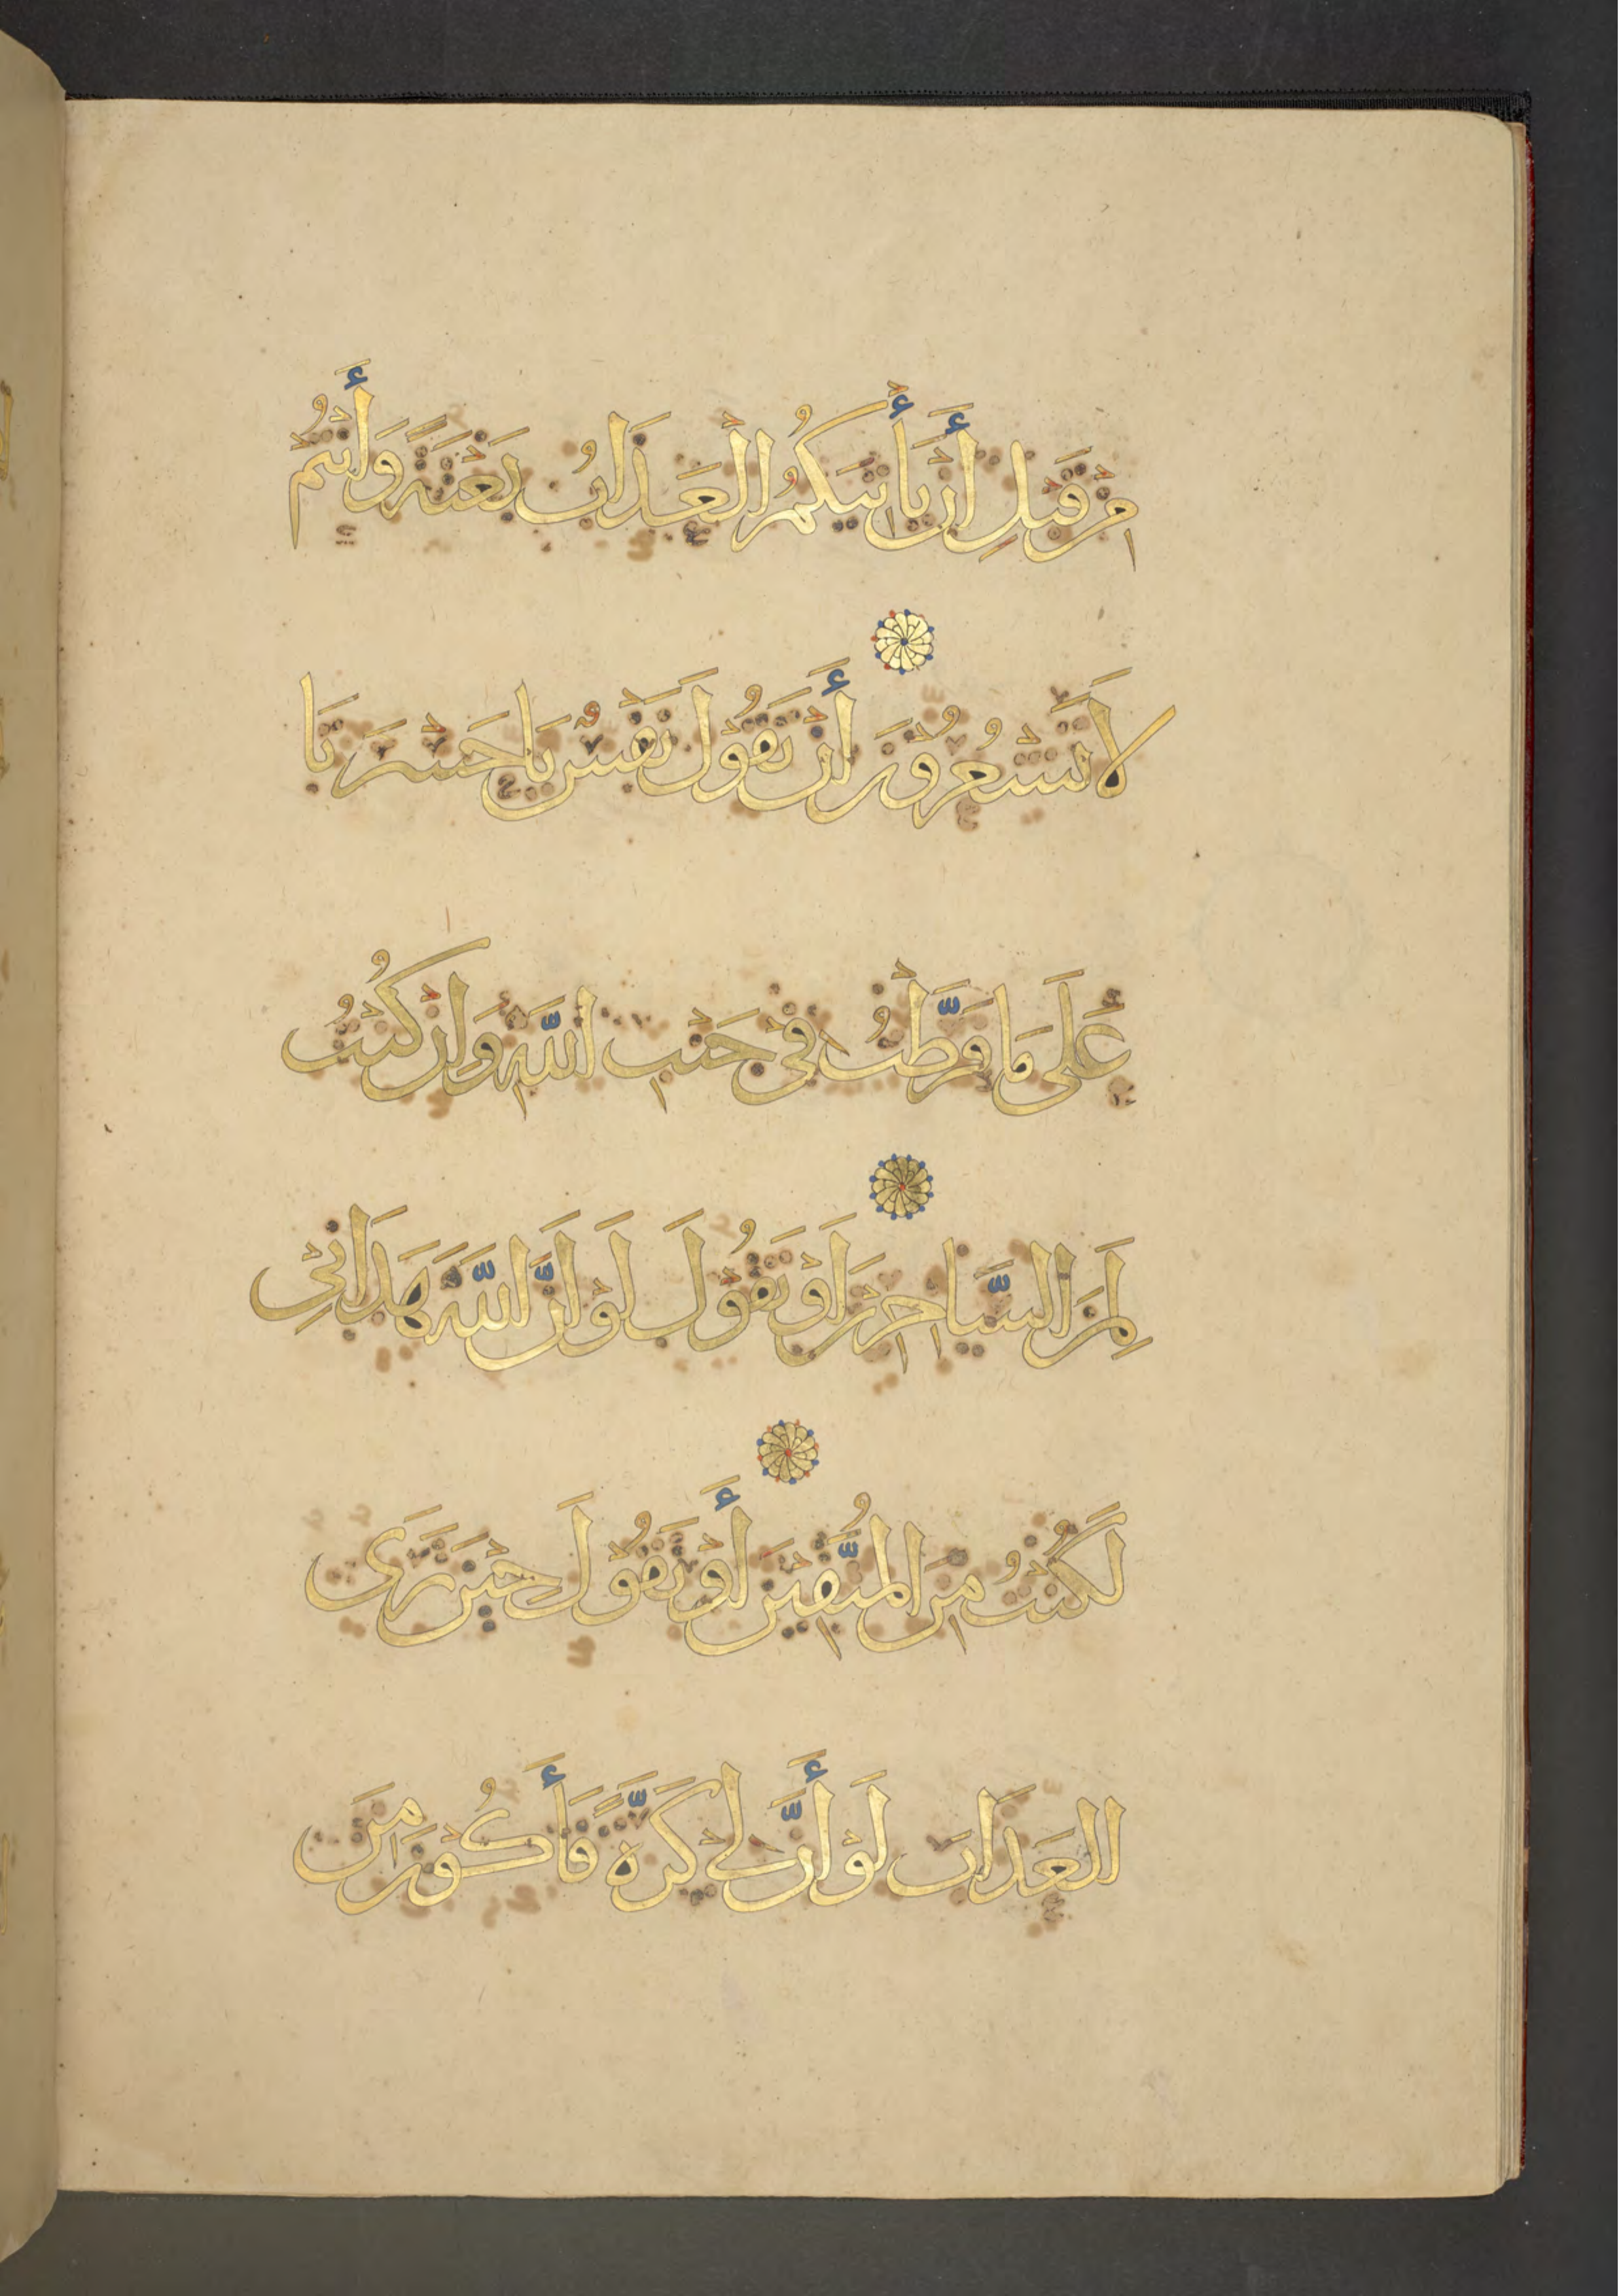 مِنْ قَبْلِ أَنْ يَأْتِيَكُمُ الْعَذَابُ بَغْتَةً وَأَنْتُمْ
لَا تَشْعُرُونَ أَنْ تَقُولَ نَفْسٌ يَا حَسْرَتَا
عَلَى مَا فَرَّطْتُ فِي جَنْبِ اللَّهِ وَإِنْ كُنْتُ
لَمِنَ السَّاخِرِينَ أَوْ تَقُولَ لَوْ أَنَّ اللَّهَ هَدَانِي
لَكُنْتُ مِنَ الْمُتَّقِينَ أَوْ تَقُولَ حِينَ تَرَى
الْعَذَابَ لَوْ أَنَّ لِي كَرَّةً فَأَكُونَ مِنَ